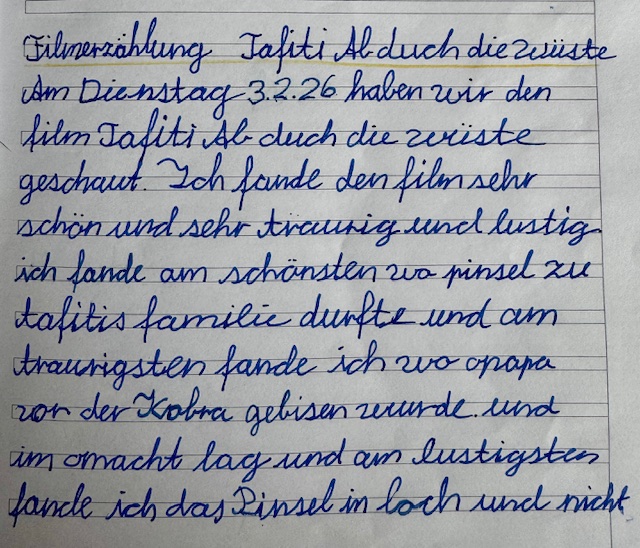 Filmerzählung Tafiti Ab duch die wüste
Am Dienstag 3.2.26 haben wir den
film Tafiti Ab duch die wüste
geschaut. Ich fande den film sehr
schön und sehr traurig und lustig
ich fande am schönsten wo pinsel zu
tafitis familie durfte und am
traurigsten fande ich wo opapa
von der Kobra gebisen wurde. und
im omacht lag und am lustigsten
fande ich das Pinsel in loch und nicht